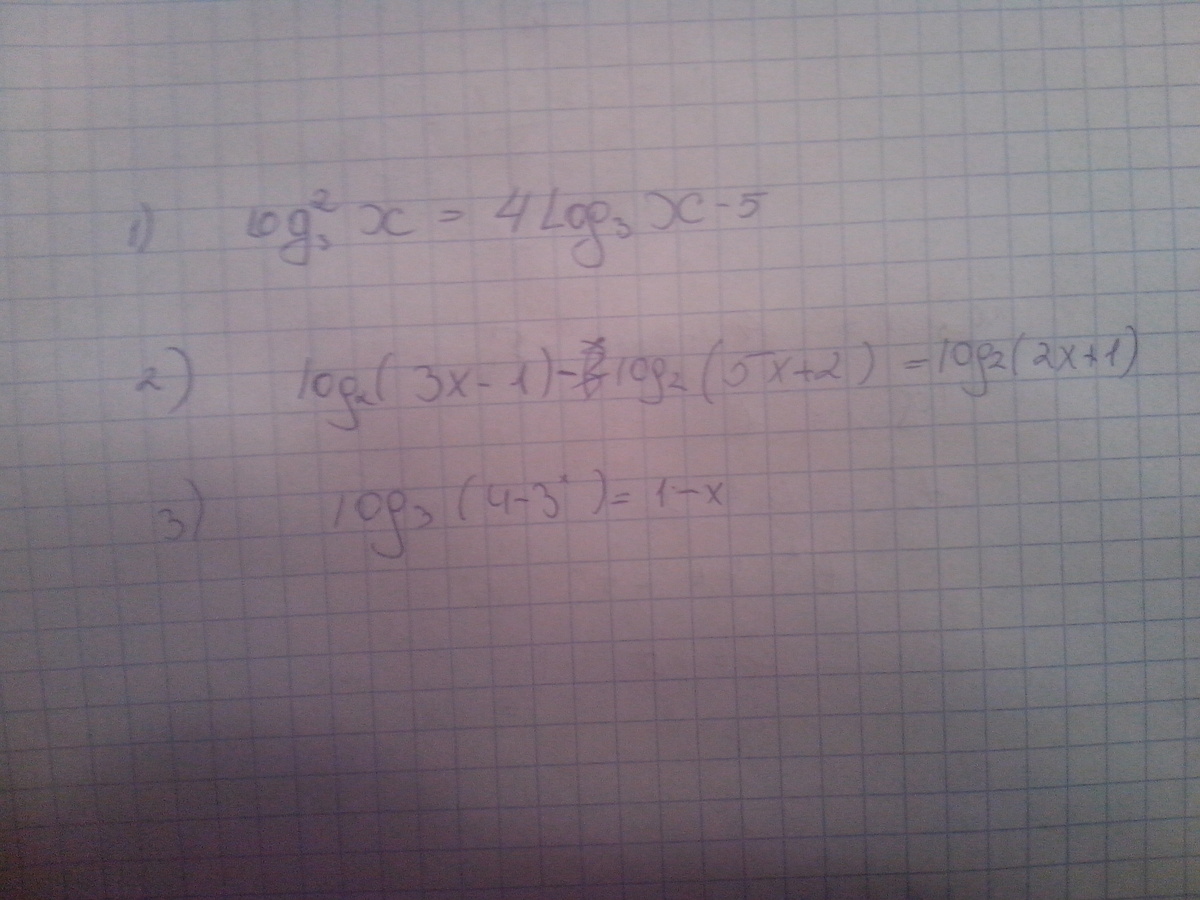 1) log₃² x = 4 log₃ x - 5
2) log₂(3x - 1) - log₂(5x + 2) = log₂(2x + 1)
3) log₃(4 - 3ˣ) = 1 - x